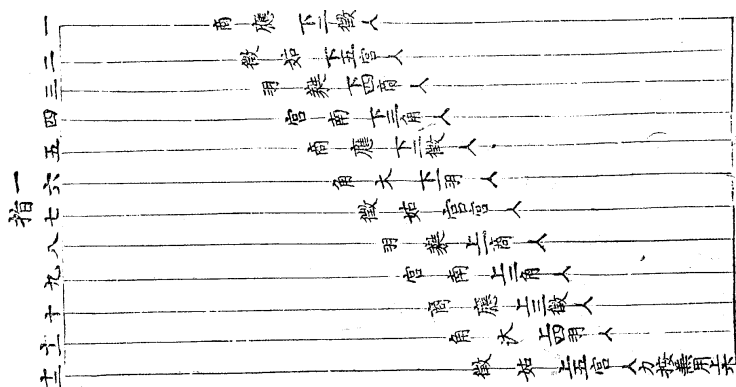 一指
一 商 應 下 徵 人
二 徵 姑 下五宮人
三 羽 蕤 下四商人
四 宮 南 下三角人
五 商 應 下二徵人
六 角 大 下一羽 人
七 徵 姑 宮宮 人
八 羽 蕤 上一商人
九 宮 南 上二角人
十 商 應 上三徵人
十一 角 大 上四羽人
十二 徵 姑 上五宮人 按無用上六